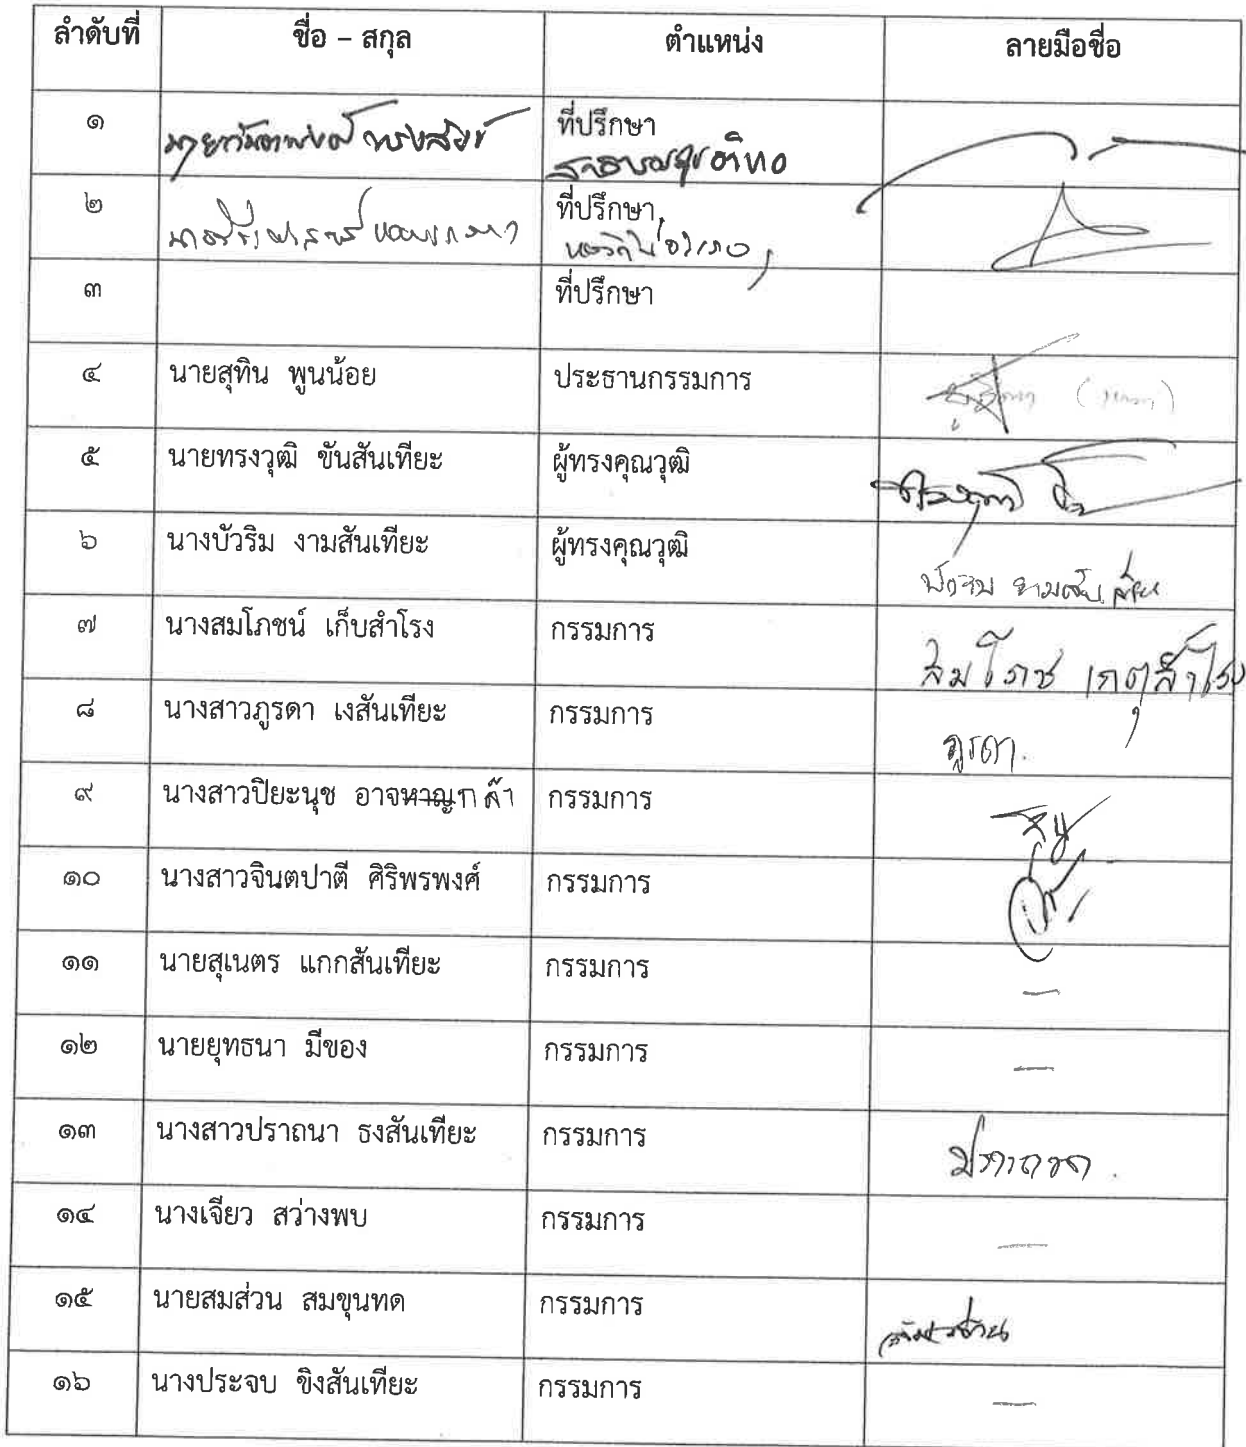 ลำดับที่ ชื่อ – สกุล ตำแหน่ง ลายมือชื่อ
๑ ที่ปรึกษา
สาธารณสุขอำเภอ
๒ ที่ปรึกษา
๓ ที่ปรึกษา
๔ นายสุทิน พูนน้อย ประธานกรรมการ
๕ นายทรงวุฒิ ขันสันเทียะ ผู้ทรงคุณวุฒิ
๖ นางบัวริม งามสันเทียะ ผู้ทรงคุณวุฒิ
๗ นางสมโภชน์ เก็บสำโรง กรรมการ สมโภช เกตุสำโรง
๘ นางสาวภูรดา เงสันเทียะ กรรมการ ภูรดา.
๙ นางสาวปิยะนุช อาจหาญกล้า กรรมการ
๑๐ นางสาวจินตปาตี ศิริพรพงศ์ กรรมการ
๑๑ นายสุเนตร แกกสันเทียะ กรรมการ –
๑๒ นายยุทธนา มีของ กรรมการ –
๑๓ นางสาวปราถนา ธงสันเทียะ กรรมการ
๑๔ นางเจียว สว่างพบ กรรมการ –
๑๕ นายสมส่วน สมขุนทด กรรมการ
๑๖ นางประจบ ขิงสันเทียะ กรรมการ –